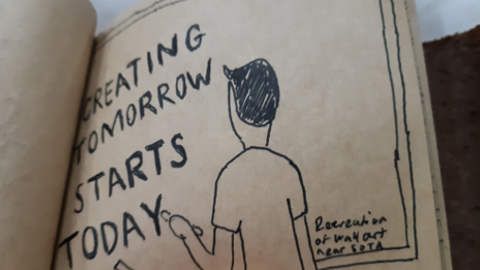 CREATING
TOMORROW
STARTS
TODAY
Recreation
of wall art
near SOTA